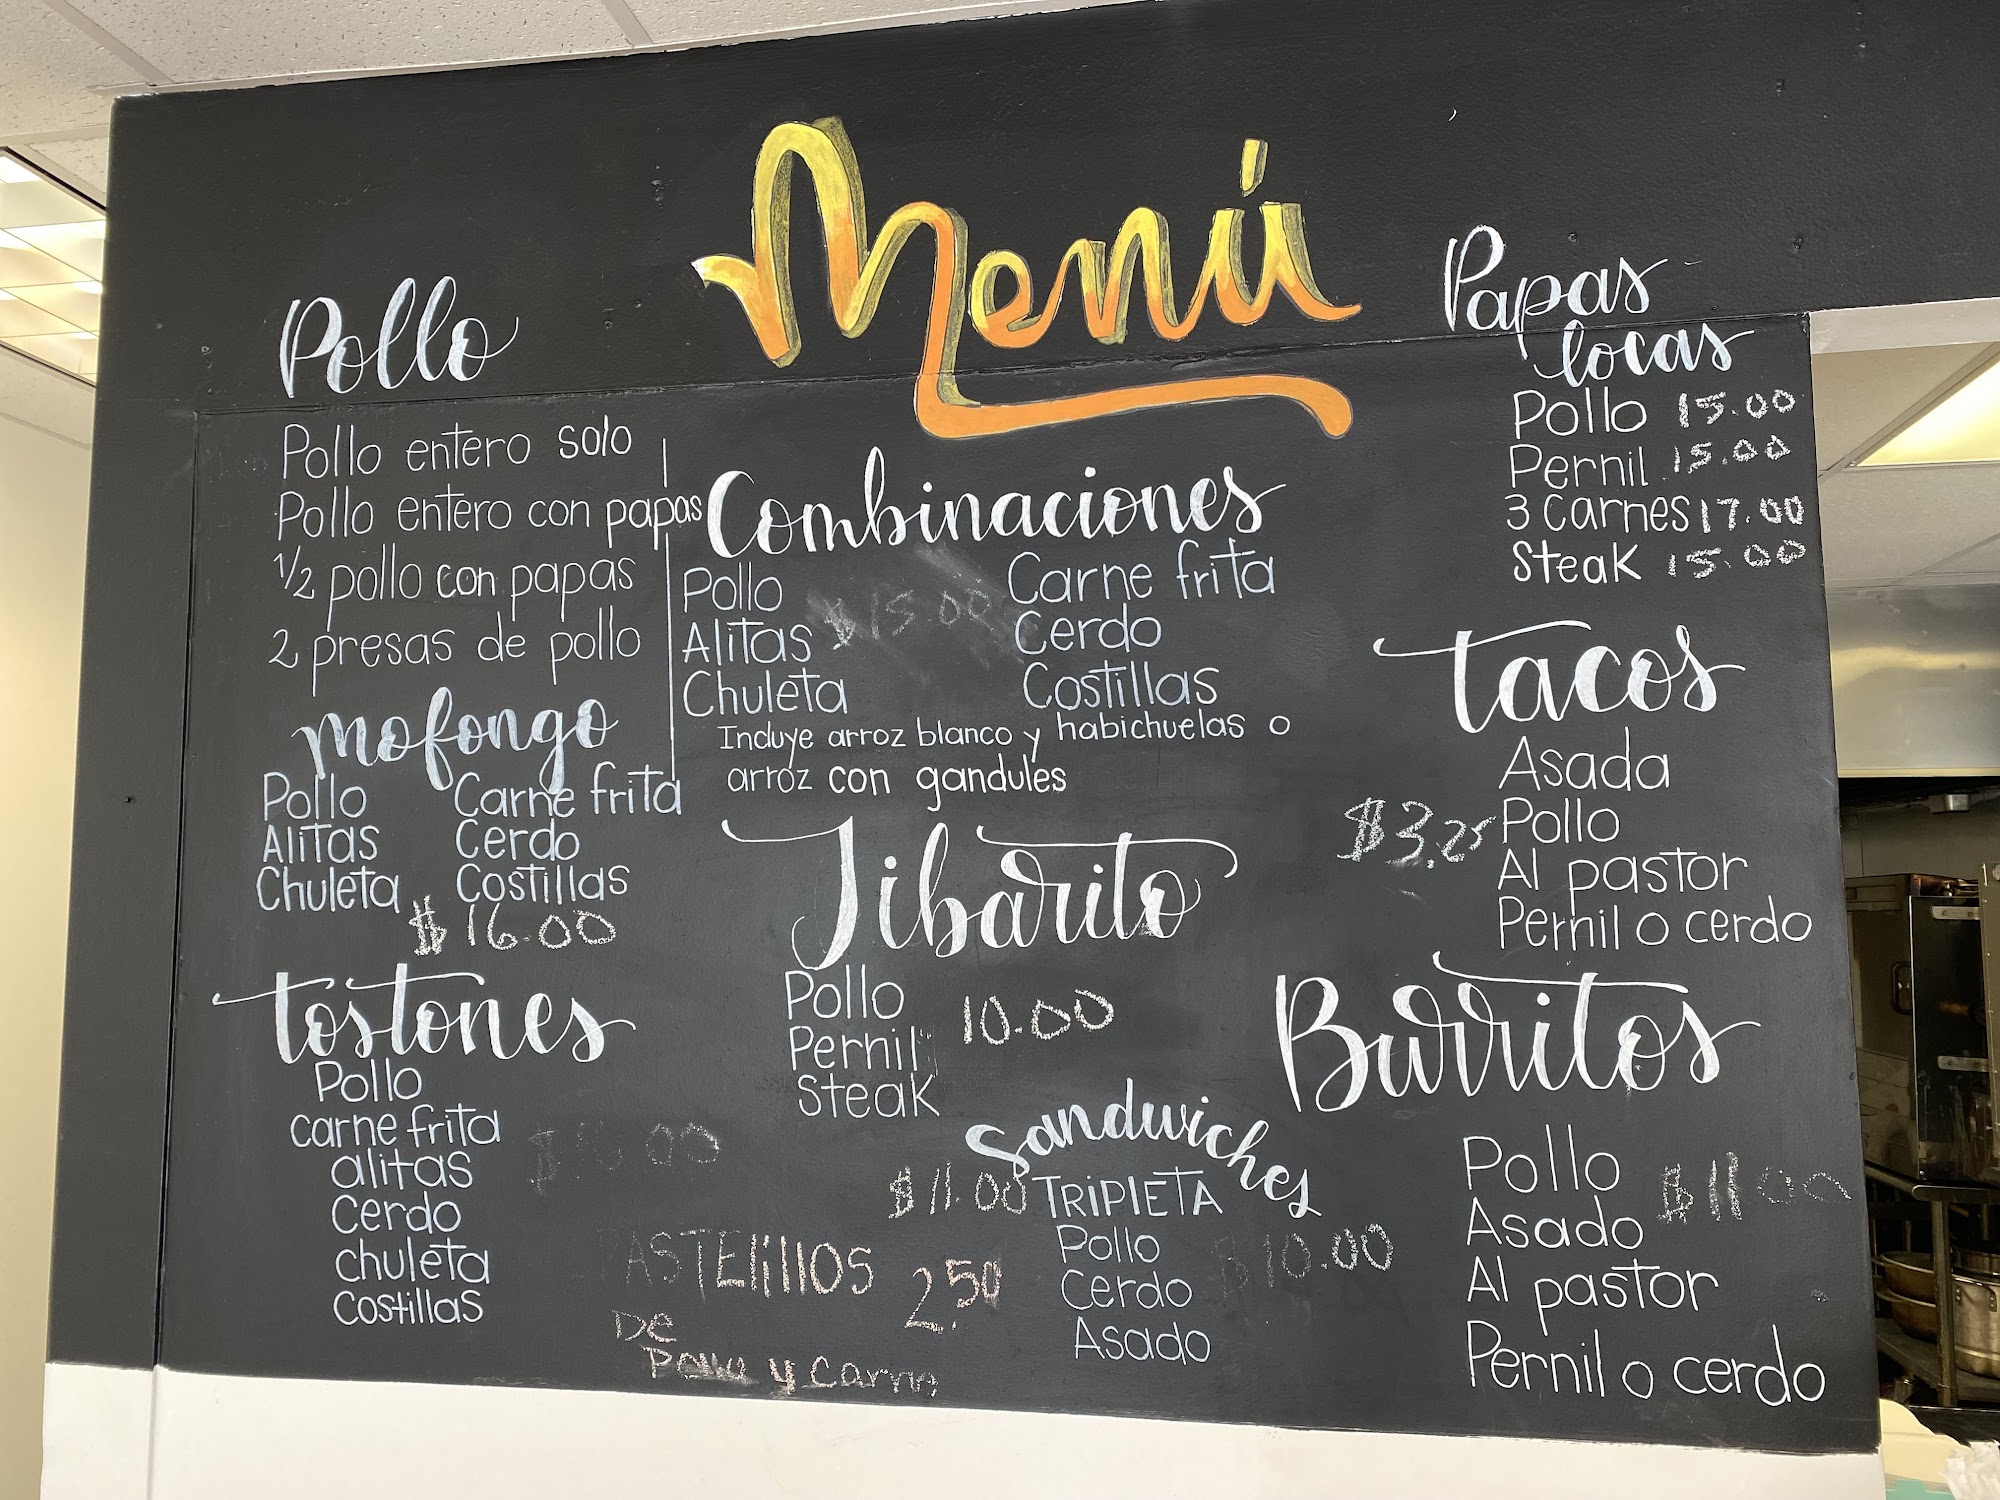 Menú
Pollo
Pollo entero solo
Pollo entero con papas
1/2 pollo con papas
2 presas de pollo
mofongo
Pollo
Alitas
Chuleta
Carne frita
Cerdo
Costillas
$16.00
tostones
Pollo
carne frita
alitas
Cerdo
chuleta
costillas
Combinaciones
Pollo
Alitas
Chuleta
$15.00
Carne frita
Cerdo
Costillas
Incluye arroz blanco y habichuelas o
arroz con gandules
Jibarito
Pollo
Pernil
Steak
10.00
Sandwiches
$11.00 TRiPLETA
Pollo
Cerdo
Asado
$10.00
PASTElillOS 2.50
De
y Carne
Papas
locas
Pollo 15.00
Pernil 15.00
3 Carnes 17.00
Steak 15.00
tacos
Asada
Pollo
Al pastor
Pernil o cerdo
$3.25
Burritos
Pollo
Asado
Al pastor
Pernil o cerdo
$11.00